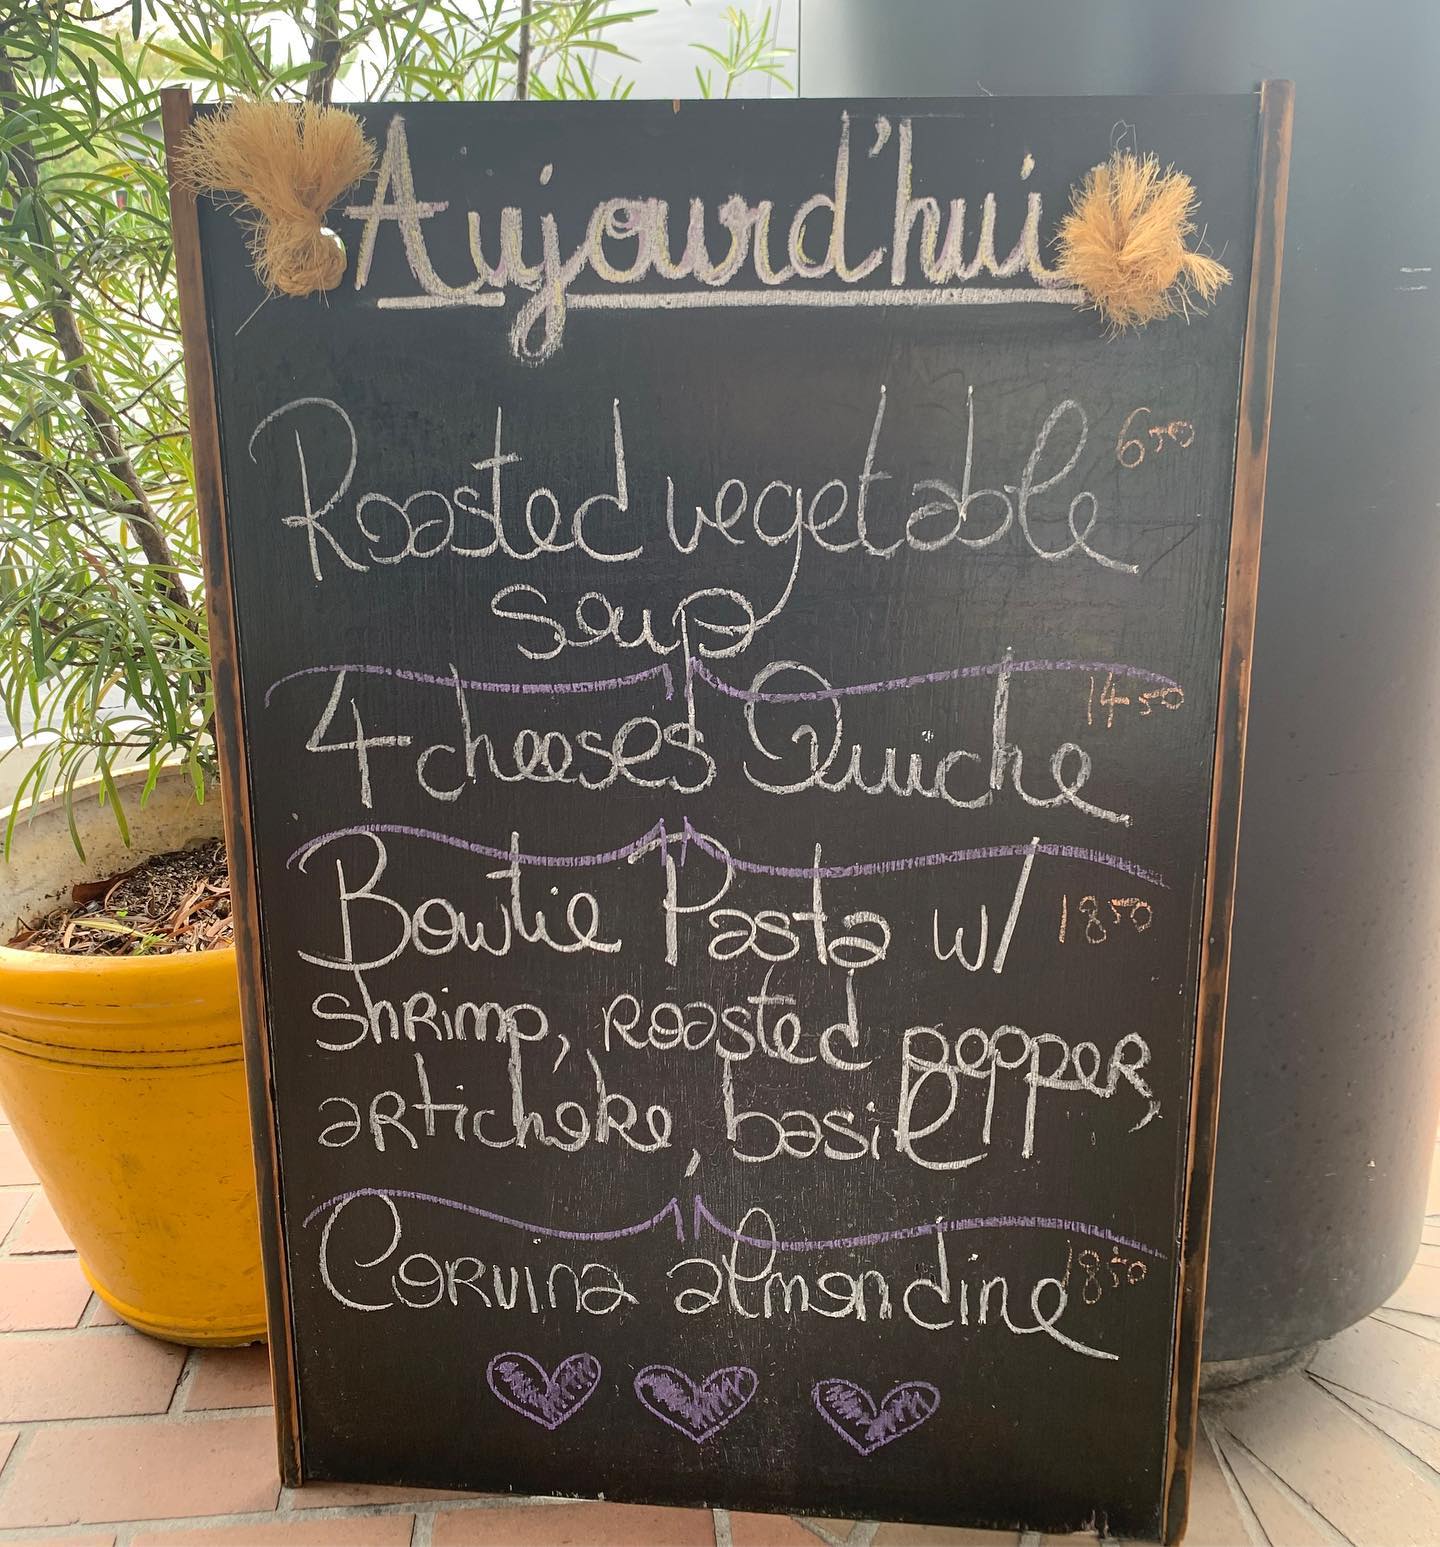 Aujourd'hui
Roasted vegetable 6.50
soup
4 cheeses Quiche 14.50
Bowtie Pasta w/ 18.50
shrimp, roasted pepper,
artichoke, basil
Corvina almondine 18.50